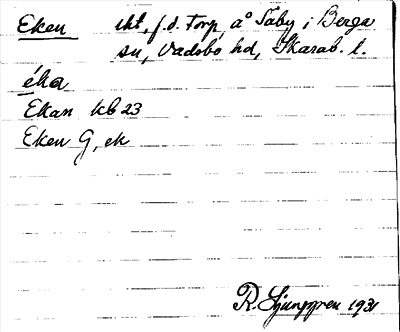 Eken ikt, f.d. Torp, å Täby i Berga
sn, Vadsbo hd, Skarab. l.
éka
Ekan kb 23
Eken G, ek
R. Ljunggren 1931